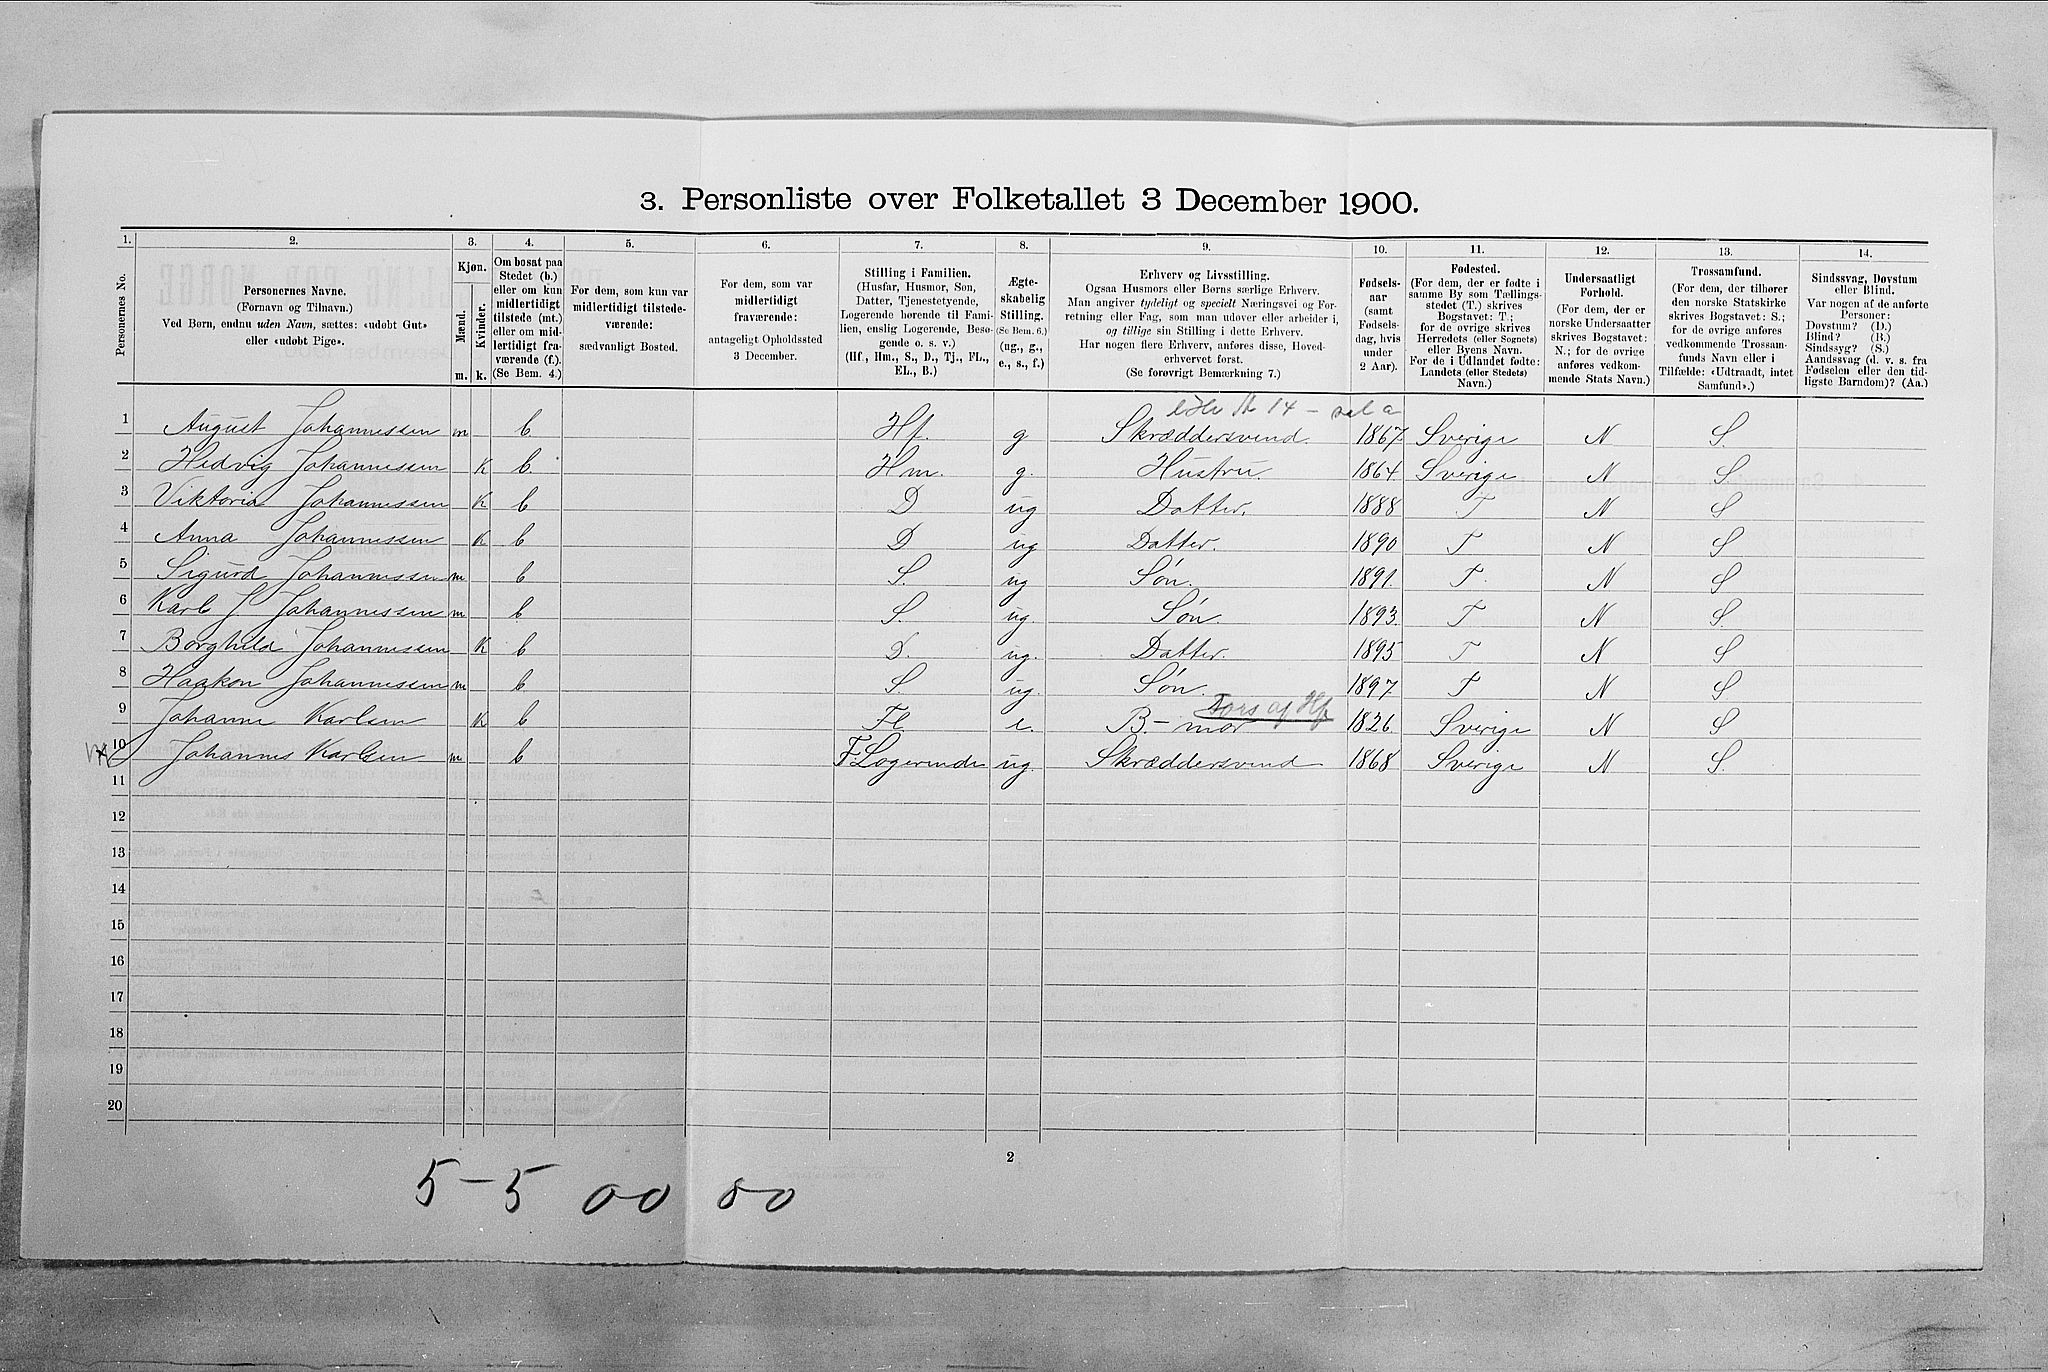 3. Personliste over Folketallet 3 December 1900.
1. 2. 3. 4. 5. 6. 7. 8. 9. 10. 11. 12. 13. 14.
Personernes No.
Personernes Navne.
(Fornavn og Tilnavn.)
Ved Børn, endnu uden Navn, sættes: «udøbt Gut»
eller «udøbt Pige».
Kjøn.
Mænd.
Kvinder.
m. k.
Om bosat paa
Stedet (b.)
eller om kun
midlertidigt
tilstede (mt.)
eller om mid-
lertidigt fra-
værende (f.).
(Se Bem. 4.)
For dem, som kun var
midlertidigt tilstede-
værende:
sædvanligt Bosted.
For dem, som var
midlertidigt
fraværende:
antageligt Opholdssted
3 December.
Stilling i Familien.
(Husfar, Husmor, Søn,
Datter, Tjenestetyende,
Logerende hørende til Fami-
lien, enslig Logerende, Besø-
gende o. s. v.)
(Hf., Hm., S., D., Tj., FL.,
EL., B.)
Ægte-
skabelig
Stilling.
(Se Bem. 6.)
(ug., g.,
e., s., f.)
Erhverv og Livsstilling.
Ogsaa Husmors eller Børns særlige Erhverv.
Man angiver tydeligt og specielt Næringsvei og For-
retning eller Fag, som man udøver eller arbeider i,
og tillige sin Stilling i dette Erhverv.
Har nogen flere Erhverv, anføres disse, Hoved-
erhvervet først.
(Se forøvrigt Bemærkning 7.)
Fødsels-
aar
(samt
Fødsels-
dag, hvis
under
2 Aar).
Fødested.
(For dem, der er fødte i
samme By som Tællings-
stedet (T.) skrives
Bogstavet: T.;
for de øvrige skrives
Herredets (eller Sognets)
eller Byens Navn.
For de i Udlandet fødte:
Landets (eller Stedets)
Navn.)
Undersaatligt
Forhold.
(For dem, der er
norske Undersaatter
skrives Bogstavet:
N.; for de øvrige
anføres vedkom-
mende Stats Navn.)
Trossamfund.
(For dem, der tilhører
den norske Statskirke
skrives Bogstavet: S.;
for de øvrige anføres
vedkommende Trossam-
funds Navn eller i
Tilfælde: «Udtraadt, intet
Samfund».)
Sindssvag, Døvstum
eller Blind.
Var nogen af de anførte
Personer:
Døvstum? (D.)
Blind? (B.)
Sindssyg? (S.)
Aandssvag (d. v. s. fra
Fødselen eller den tid-
ligste Barndom)? (Aa.)
1 August Johannessen m b. Hf. g Skræddersvend. 1867 Sverige N S.
2 Hedvig Johannessen K b. Hm. g. Hustru. 1864 Sverige N S
3 Viktoria Johannessen K b D ug Datter. 1888 T N S
4 Anna Johannessen K b D ug Datter. 1890 T N S
5 Sigurd Johannessen m b S. ug Søn. 1891. T. N S
6 Karl J Johannessen m b S. ug. Søn. 1893. T N S.
7 Borghild Johannessen K b D. ug. Datter. 1895 T N S
8 Haakon Johannessen m b S. ug. Søn. 1897 T N S
Fors af Hf
9 Johanne Karlsen K b Fl e. B-mor 1826 Sverige N S
10 Johannes Karlsen m b F.Logerende ug. Skræddersvend 1868 Sverige N S.
11
12
13
14
15
16
17
18
19
20
2
5-5 00 00